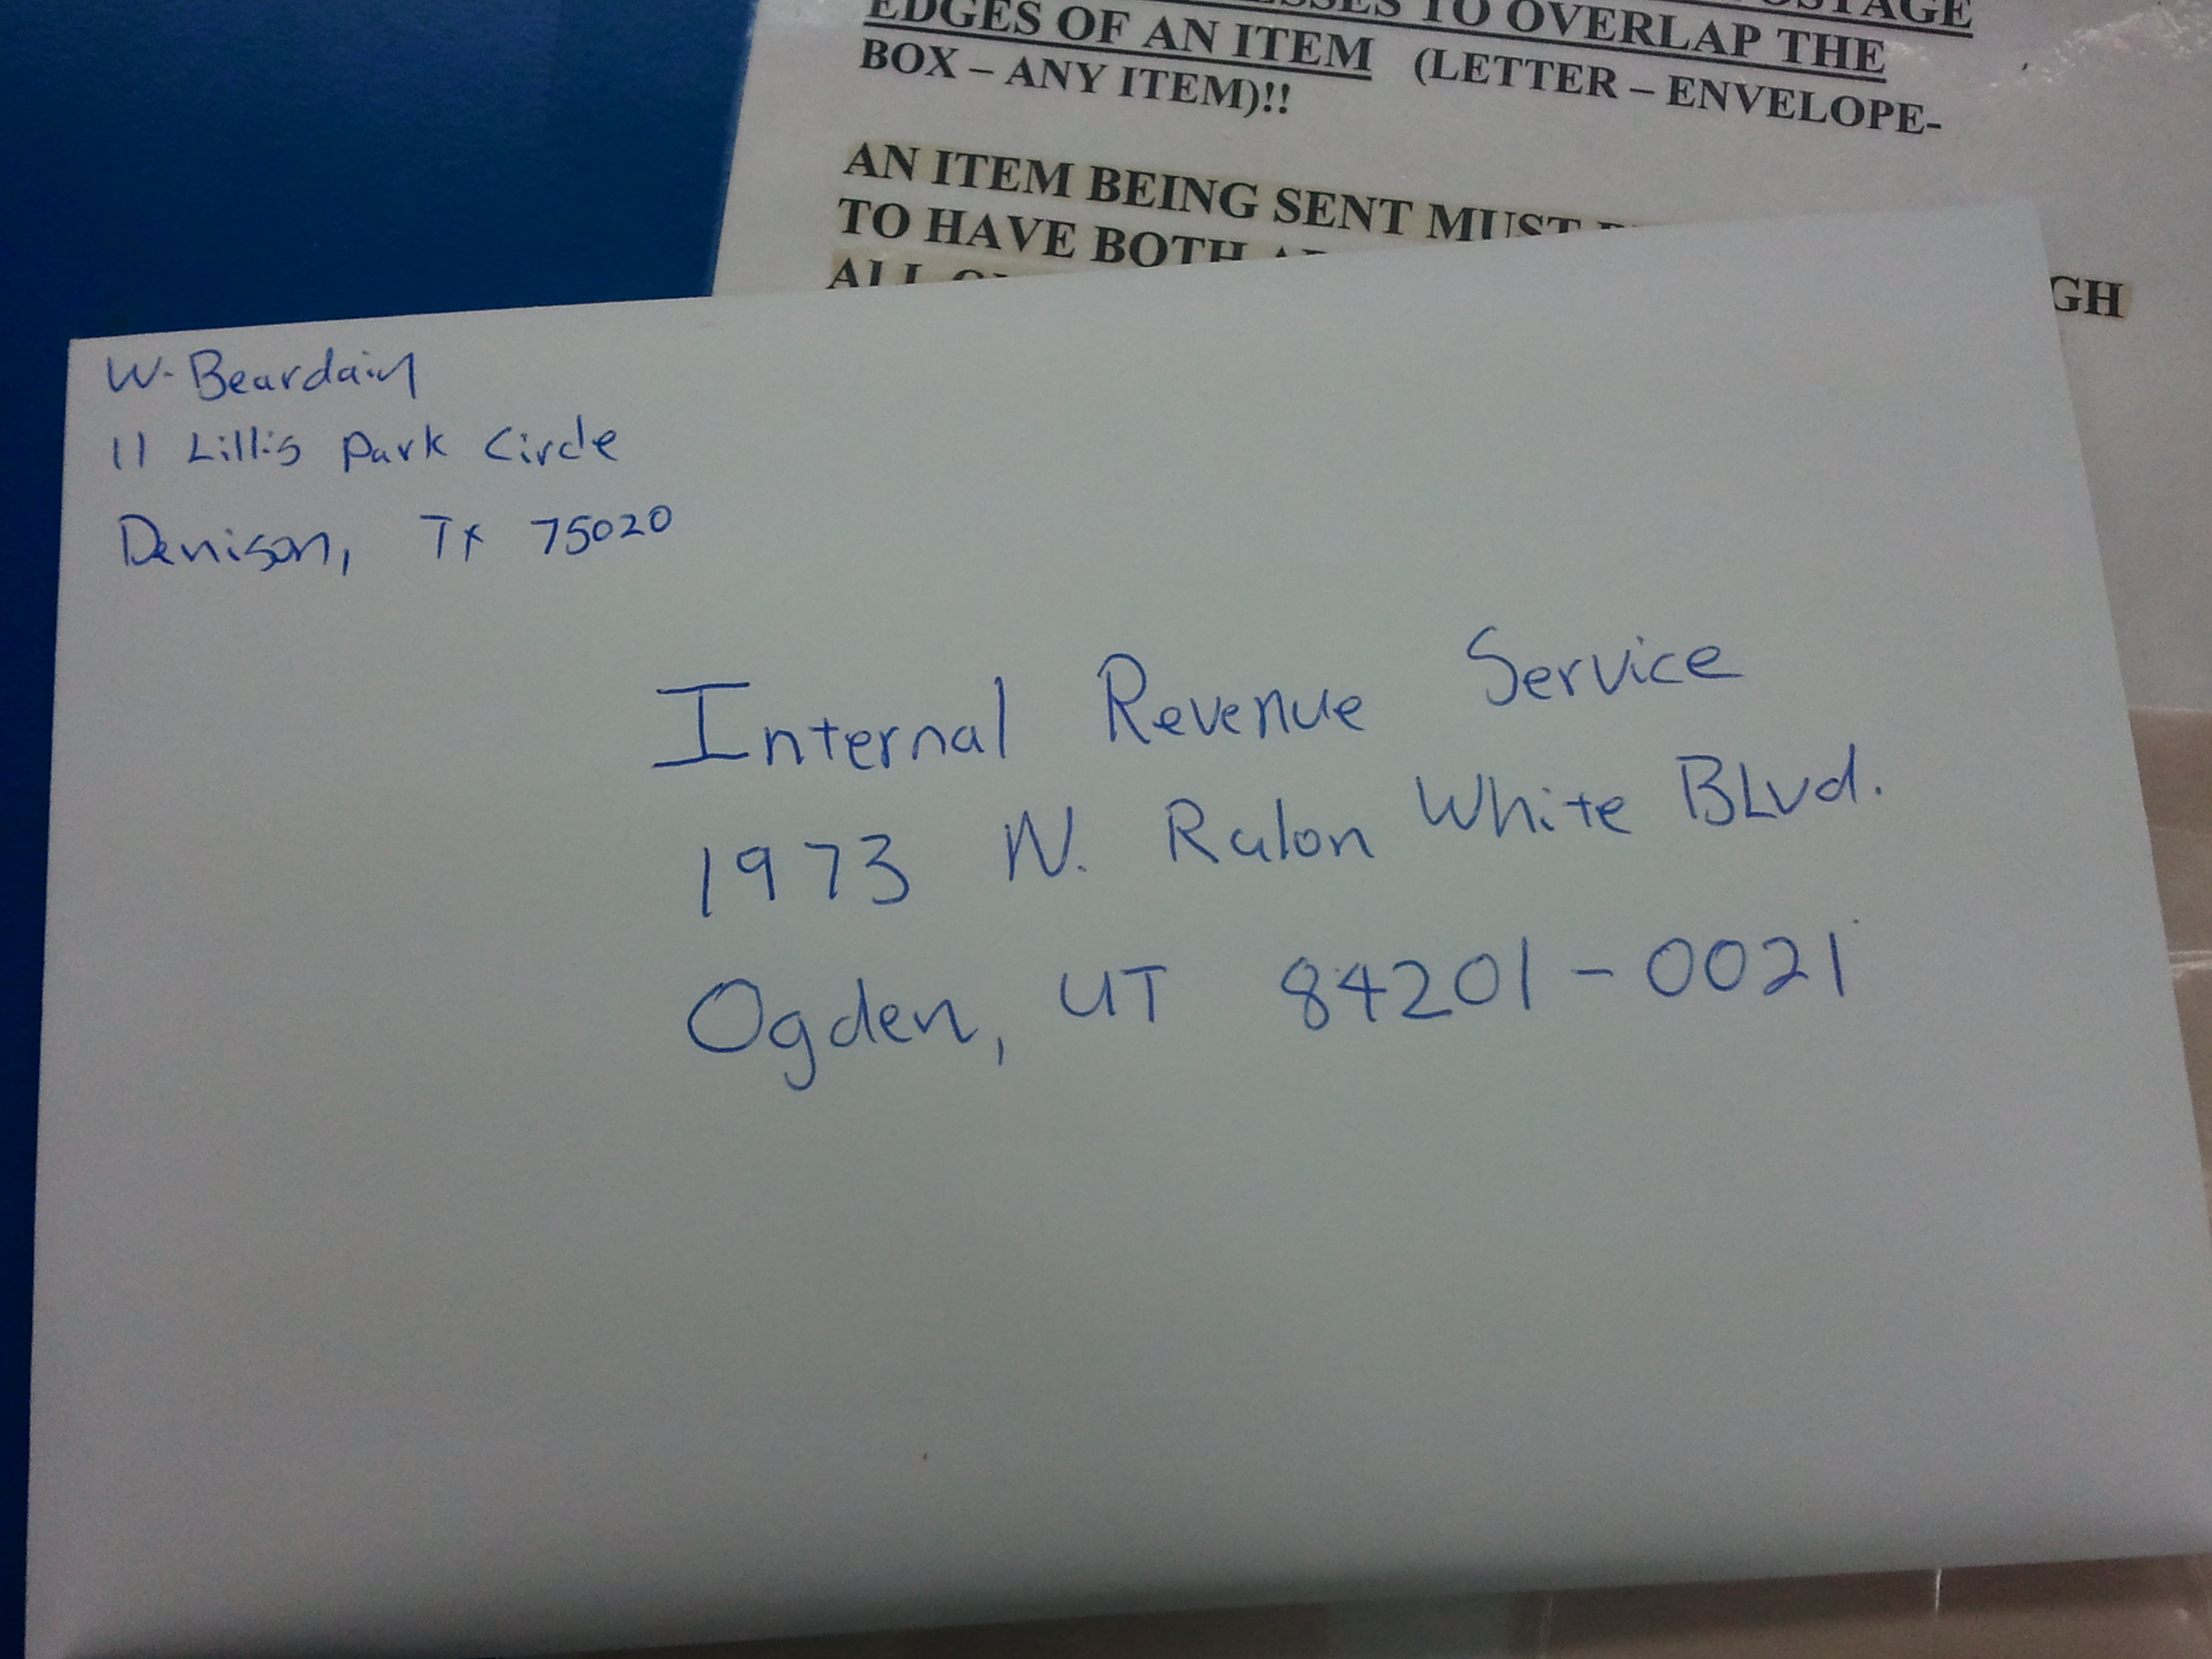 STAGE
ESSES TO OVERLAP THE
EDGES OF AN ITEM (LETTER – ENVELOPE-
BOX – ANY ITEM)!!
AN ITEM BEING SENT MUST
TO HAVE BOTH
ALL
GH
W. Beardain
11 Lillis Park Circle
Denison, TX 75020
Internal Revenue Service
1973 N. Rulon White BLvd.
Ogden, UT 84201-0021